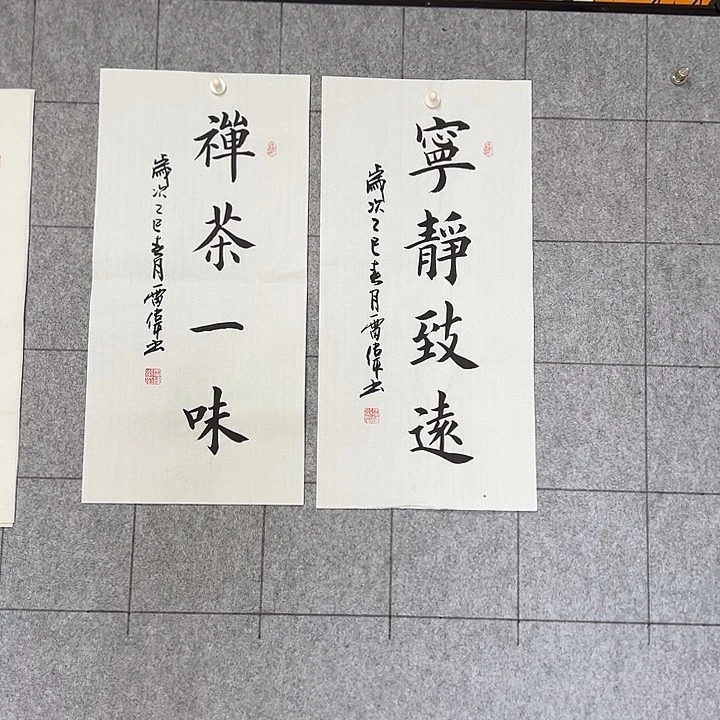 寧靜致遠
歲次乙巳春月雷偉书
禪茶一味
歲次乙巳春月雷偉书